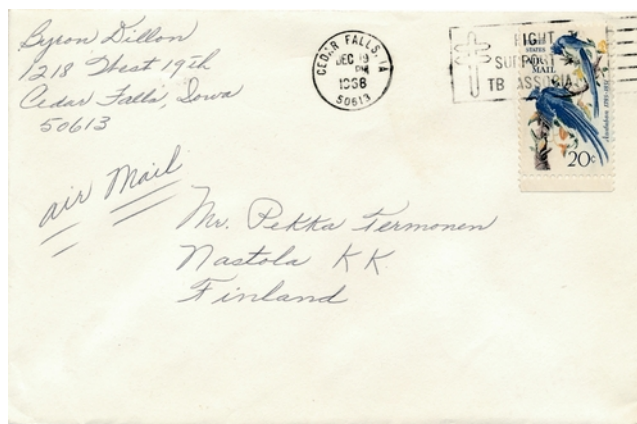 Byron Dillon
1218 West 19th
Cedar Falls, Iowa
50613
CEDAR FALLS, IA
DEC 19
PM
1968
50613
FIGHT
SUPPORT
TB ASSOCIA
STATES
AIR
MAIL
Audubon 1785-1851
20c
air Mail
Mr. Pekka Termonen
Nastola KK
Finland